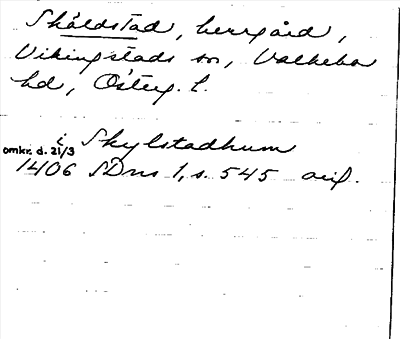 Sköldstad, herrgård,
Vikingstads sn, Valkebo
hd, Österg. l.
i Skylstadhum
omkr. d. 21/3
1406 SDns 1, s. 545 avf.